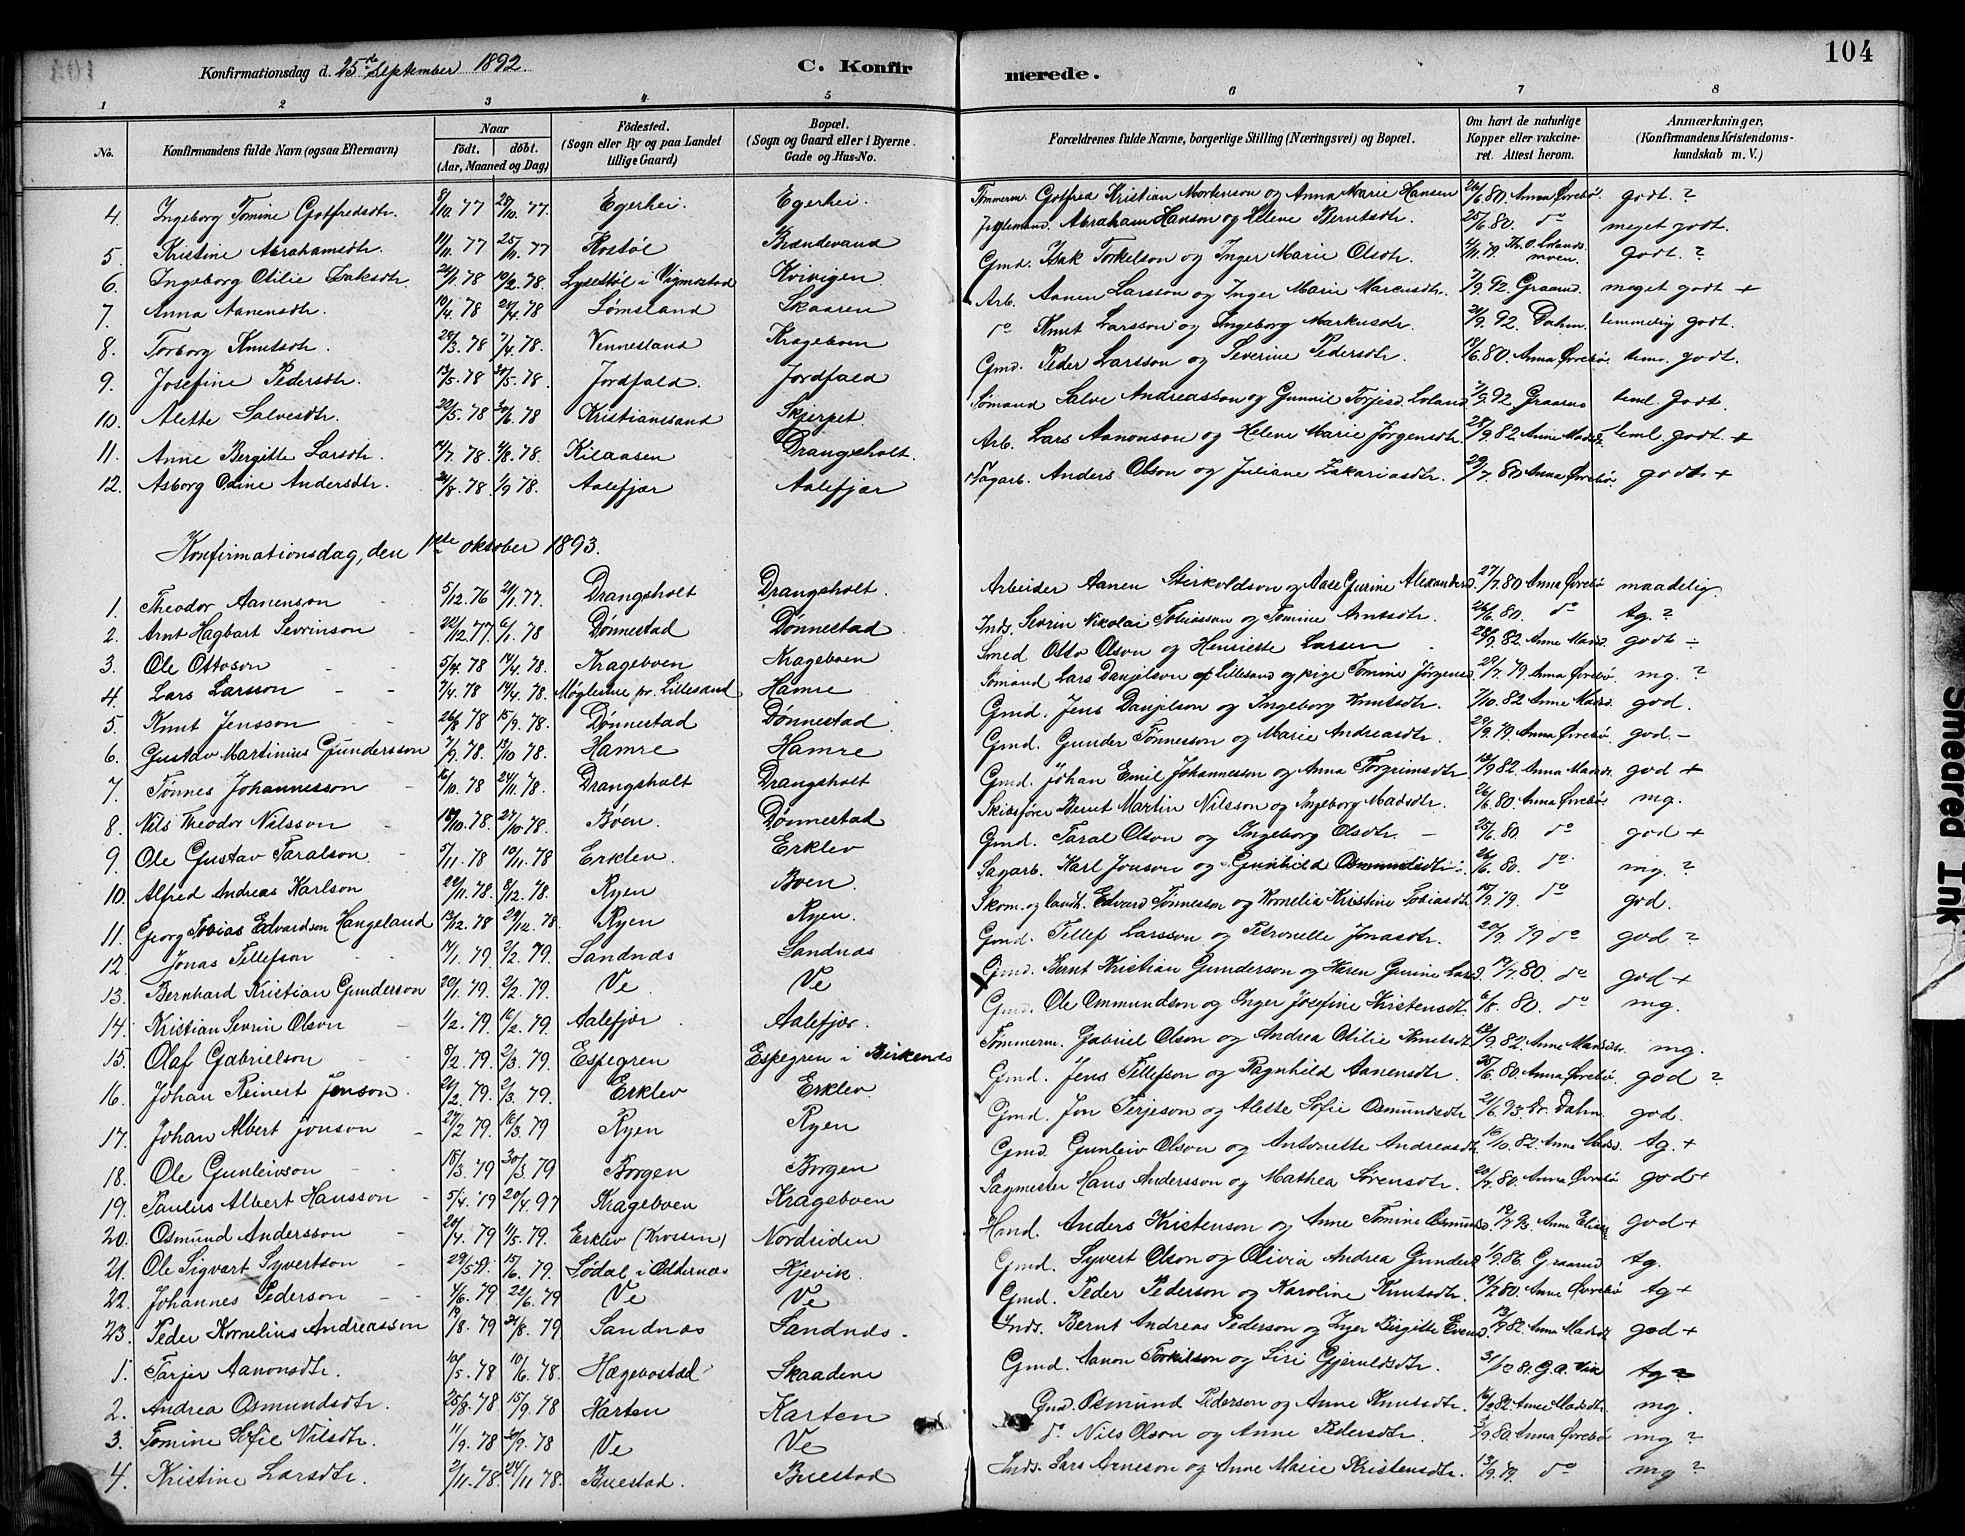 104
Konfirmationsdag d. 25de September 1892. C. Konfirmerede.
1 2 3 4 5 6 7 8
No. Konfirmandens fulde Navn (ogsaa Efternavn) Naar født. døbt. (Aar, Maaned og Dag) Fødested. (Sogn eller By og paa Landet tillige Gaard) Bopæl. (Sogn og Gaard eller i Byerne Gade og Hus-No. Forældrenes fulde Navne, borgerlige Stilling (Næringsvei) og Bopæl. Om havt de naturlige Kopper eller vakcineret. Attest herom. Anmærkninger, (Konfirmandens Kristendomskundskab m. V.)
4. Ingeborg Tomine Gotfredsdtr. 8/10 77 28/10 77. Egerhei. Egerhei. Tømmerm. Gotfred Kristian Mortenson og Anna Marie Hansen 26/6 80 Anna Øvrebø. godt. ?
5. Kristine Abrahamsdtr. 11/11 77 25/11 77 Rostøl Brændevand Abraham Hanson og Helene Berntsdtr. 25/6 80. do meget godt.
6. Ingeborg Otilie Isaksdtr. 20/1 78 10/2 78. Lysestøl i Vigmostad Kvivigen Gmd. Isak Torkelson og Inger Marie Olsdtr. godt. ?
7. Anna Aanensdtr. 10/4 78 28/4 78 Lømsland Skaaren Arb. Aanen Larsson og Inger Marie Marcusdtr. 7/9 92 Graarud. meget godt +
8. Torborg Knutsdtr. 20/3 78 7/4 78. Vennesland Krageboen do Knut Larsson og Ingeborg Markusdtr. 21/9 92. Dahm. temmelig godt.
9. Josefine Pedersdtr. 13/5 78 30/5 78. Jordfald. Jordfald Gmd. Peder Larsson og Severine Pedersdtr. 19/6 80. Anna Øvrebø. tem. godt.
10. Alette Salvesdtr. 22/5 78 30/6 78 Kristianssand Skjerpet Sømand Salve Andreasson og Gunnil Torjesd. Loland 7/9 92 Graarud teml. godt.
11. Anne Bergitte Larsdtr. 14/7 78 4/8 78. Kilaasen Drangsholt. Arb. Lars Aanonson og Helene Marie Jørgensdtr. 28/9 82 Anne Madsd. teml. godt +
12. Asborg Odine Andersdtr. 20/8 78. 1/9 78. Aalefjær Aalefjær Sagarb. Anders Olson og Juliane Zakariasdtr. 29/7 80 Anna Øvrebø. godt +
Konfirmationsdag, den 1ste oktober 1893.
1. Theodor Aanenson 5/12 76 21/1 77. Drangsholt Drangsholt. Arbeider Aanen Sterkoldson og Aase Gurine Alexanderd. 27/7 80 Anna Øvrebø maadelig
2. Arnt Hagbart Sevrinson 22/12 77 6/1 78 Dønnestad Dønnestad Inds. Sevrin Nikolai Tobiasson og Tomine Arntsdtr. 26/6 80. do tg. ?
3. Ole Ottoson 5/4 78 14/4 78. Krageboen Krageboen Smed Otto Olson og Henriette Larsen 28/9 82 Anne Madsd. godt -
4. Lars Larsson 7/4 78 14/4 78. Møglestue pr. Lillesand Hamre Sømand Lars Danjelson af Lillesand og pige Tomine Jørgensd. 29/7 79 Anna Øvrebø. mg. ?
5. Knut Jensson 26/8 78 15/9 78. Dønnestad Dønnestad Gmd. Jens Danjelson og Ingeborg Knutsdtr. 7/10 82 Anne Madsd. god.
6. Gustav Martinius Gundersson 7/9 78. 13/10 78. Hamre Hamre Gmd. Gunder Tønnesson og Marie Andreasdtr. 29/9 79. Anna Øvrebø god. -
7. Tønnes Johannesson 16/10 78 24/11 78. Drangsholt Drangsholt Gmd. Johan Emil Johannesson og Anna Torgrimsdtr 18/9 82. Anna Madsdt. god +
8. Nils Theodor Nilsson 18/10 78. 27/10 78. Boen. Dønnestad Skibsfører Bernt Martin Nilsson og Ingeborg Madsdtr. 26/6 80. Anna Øvrebø. mg.
9. Ole Gustav Taralson 5/11 78 10/11 78 Erklev. Erklev Gmd. Taral Olson og Ingeborg Olsdtr. 25/6 80 do god +
10. Alfred Andreas Karlson 22/11 78. 8/12 78. Ryen Boen. Sagarb. Karl Jonson og Gunhild Osmundsdtr. 26/6 80. do. mg. ?
11. Georg Tobias Edvardson Hangeland 13/12 78 29/12 78 Ryen Ryen. Skom. og landh. Edvard Tønnesson og Kornelia Kristine Tobiasdtr. 18/9 79. do god.
12. Jonas Tellefson 14/1 79 2/2 79. Sandnæs Sandnæs Gmd. Tellef Larsson og Petronelle Jonasdtr. 20/9 79 do god ?
13. Bernhard Kristian Gunderson 20/1 79. 2/2 79. Ve Ve Gmd. Bernt Kristian Gunderson og Karen Gurine Larsd. 17/7 80. do god +
14. Kristian Sevrin Olson 1/2 79. 16/2 79. Aalefjær Aalefjær. Gmd. Ole Ommundson og Inger Josefine Kristensdt. 6/8 80. do mg.
15. Olaf Gabrielson 8/2 79. 2/3 79. Espegren Espegren i Birkenes Tømmerm. Gabriel Olson og Andrea Otilie Knutsdtr 13/9 82. Anne Madsdtr. mg.
16. Johan Reinert Jenson. 21/2 79. 2/3 79. Erklev Erklev. Gmd. Jens Tellefson og Ragnhild Aanensdtr. 25/6 80. Anna Øvrebø. god ?
17. Johan Albert Jonson 27/2 79. 16/3 79 Ryen Ryen Gmd. Jon Terjeson og Alette Sofie Osmundsdtr 21/6 93. Dr. Dahm. god.
18. Ole Gunleivson 18/3 79 30/3 79 Borgen Borgen Gmd. Gunleiv Olson og Antonette Andreasdtr 16/10 82. Anne Madsd. tg. +
19. Paulus Albert Hansson 5/4 79 20/4 97 Krageboen Krageboen Sagmester Hans Andersson og Mathea Sørensdtr. 20/7 80. Anna Øvrebø god +
20. Osmund Andersson 20/4 79 11/5 79. Erklev (Krossen) Nordsiden Hmd. Anders Kristenson og Anne Tomine Osmundsd. god +
21. Ole Sigvart Syvertson 29/5 79. 15/6 79. Sødal i Oddernæs Kjevik. Gmd. Syvert Olson og Olivia Andrea Gundersd. 1/9 86. Graarud tg.
22. Johannes Pederson 4/6 79 22/6 79 Ve Ve Gmd. Peder Pederson og Karoline Knutsdtr. Anne Øvrebø tg +
23. Peder Kornelius Andreasson 19/8 79 31/8 79. Sandnæs Sandnæs. Inds. Bernt Andreas Pederson og Inger Birgitte Evensd. 13/9 82. Anna Madsdt god +
1. Tarjer Aanonsdtr. 10/5 78 10/6 78. Hægebostad Skaadene Gmd. Aanon Torkilson og Siri Gjeruldsdtr. tg ?
2. Andrea Osmundsdtr. 25/8 78 15/9 78 Karten Karten Gmd. Osmund Pederson og Anne Knutsdtr. Anne Madsdtr. mg.
3. Tomine Sofie Nilsdtr. 11/9 78 29/9 78 Ve Ve do Nils Olson og Anne Pedersdtr. 3/9 80. Anna Øvrebø mg ?
4. Kristine Larsdtr. 2/11 78. 24/11 78. Buestad. Buestad Inds. Lars Arneson og Anne Marie Kristensdtr. 13/9 79. do mg ?
Smeared Ink